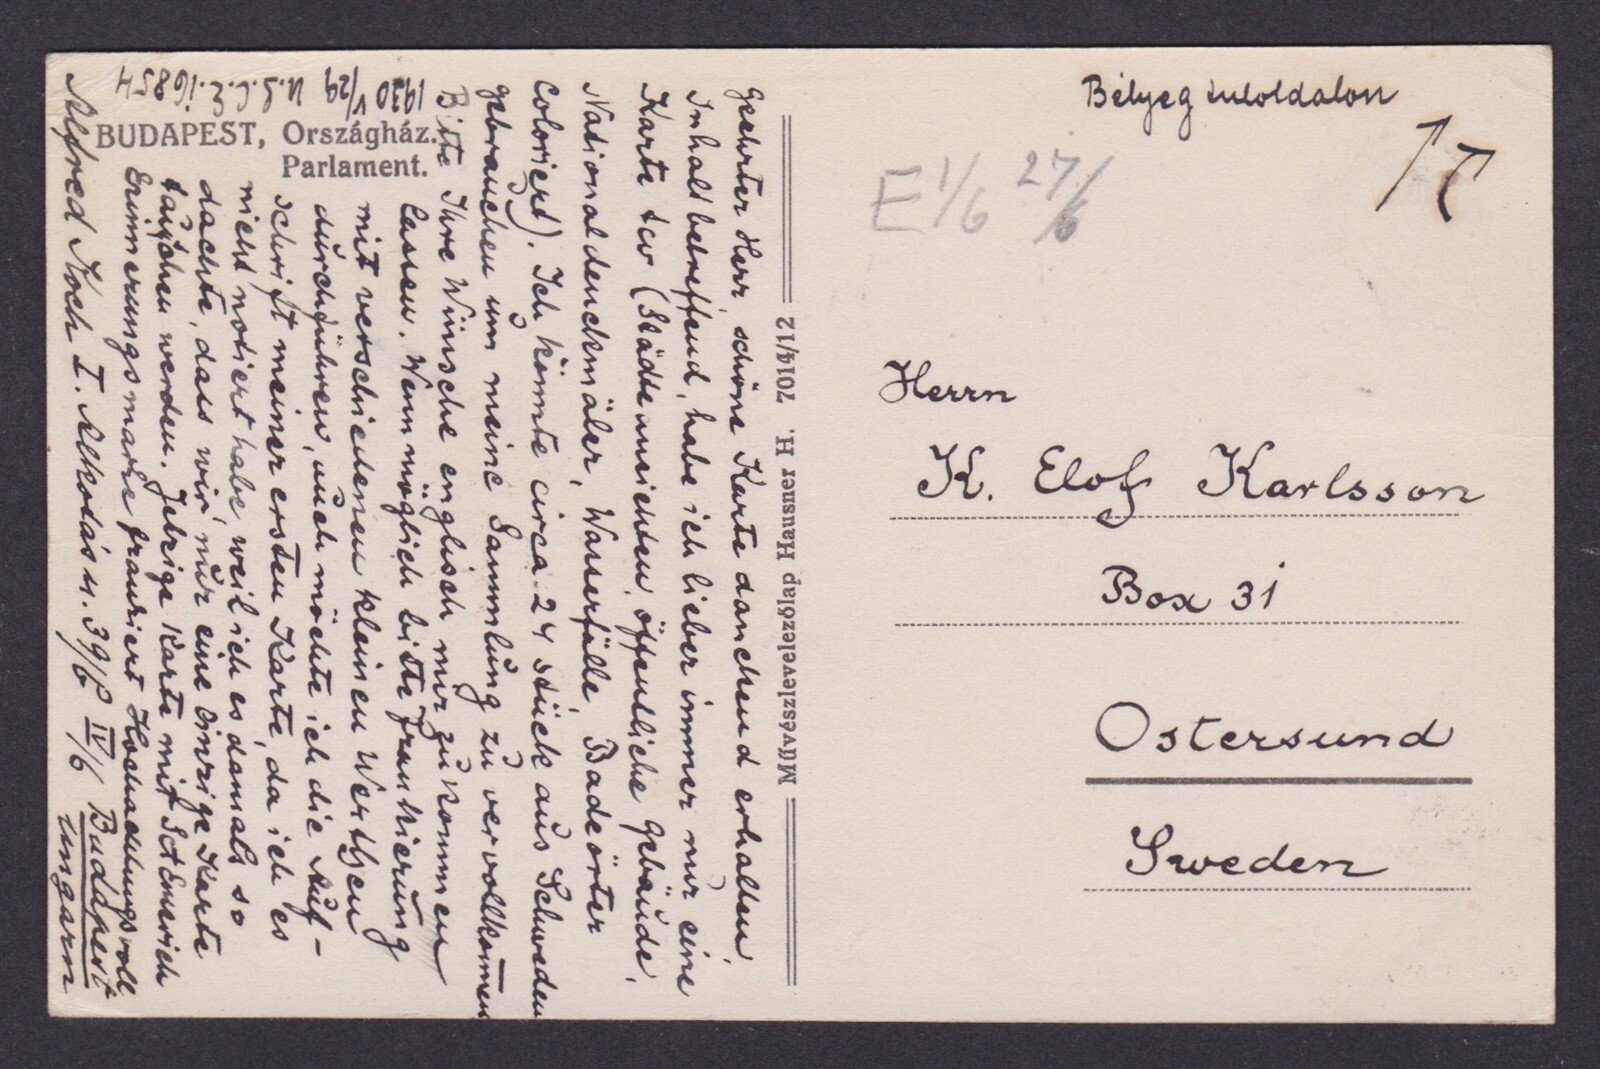 1930 V/29 U.S.C.E. 16854
BUDAPEST, Országház.
Parlament.
Geehrter Herr, schöne Karte danckend erhalten,
Inhalt betreffend, habe ich lieber immer nur eine
Karte tcv (Städteansichten, öffentliche Gebäude,
Nationaldenckmäler, Wasserfälle, Badeörter
Coloriert). Ich könnte circa 24 stück aus Schweden
gebrauchen um meine Sammlung zu vervollkommen
Bitte Ihre Wünsche englisch mir zu kommen
lassen. Wenn möglich bitte Frankierung
mit verschiedenen kleinen Werthen
durchführen, auch möchte ich die Auf-
schrift meiner ersten Karte, da ich es
nicht notiert habe, weil ich es damals so
dachte, dass wir, nur eine einzige Karte
tauschen werden. Jetzige Karte mit St Emerich
Erinnerungsmarke frankiert Hochachtungsvoll
Alfred Koch I. Alkotás u. 39/c IV/6 Budapest
Ungarn
Művészlevelezőlap Hausner H. 7014/12
Bélyeg tuloldalon
E 1/6 27/6
Herrn
K. Elof Karlsson
Box 31
Ostersund
Sweden